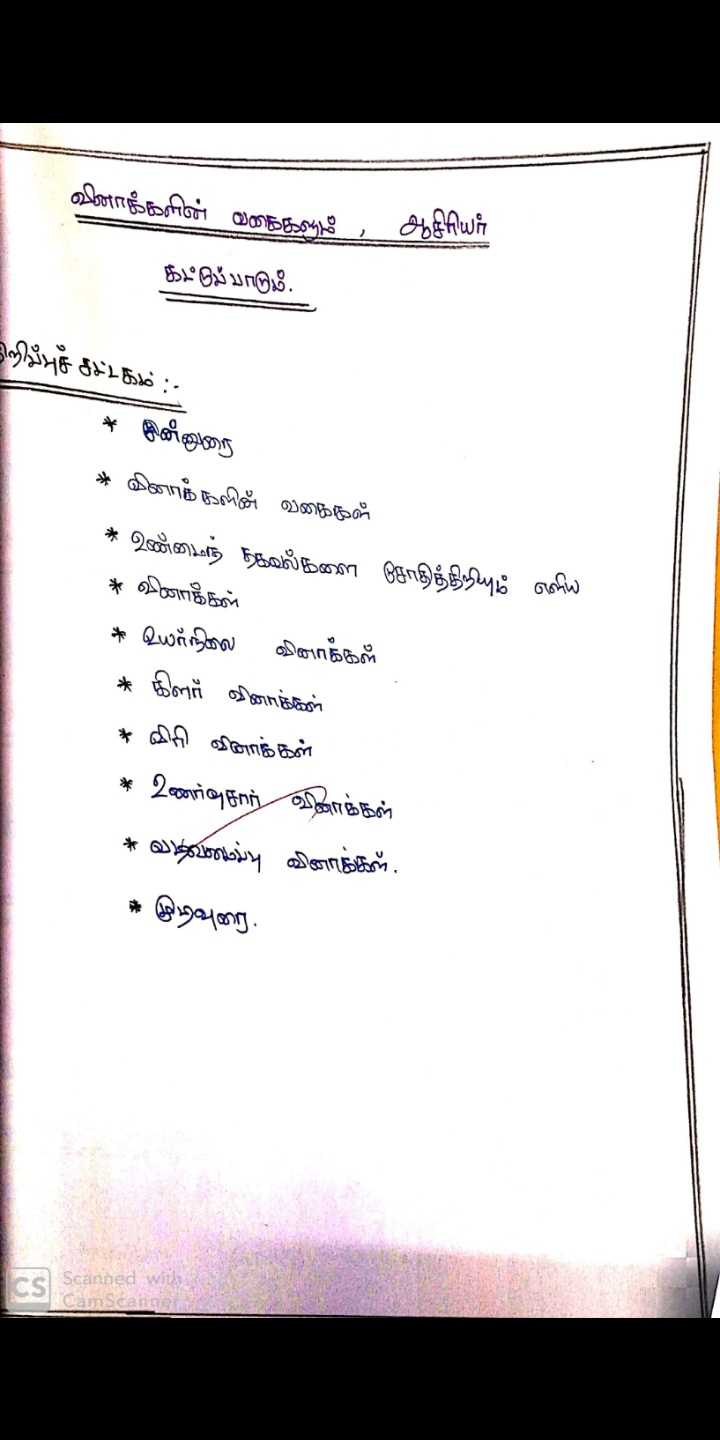 வினாக்களின் வகைகளும் , ஆசிரியர்
கட்டுப்பாடும்.
குறிப்புச் சட்டகம் :-
* முன்னுரை
* வினாக்களின் வகைகள்
* உண்மைத் தகவல்களை சோதித்தறியும் எளிய
* வினாக்கள்
* உயர்நிலை வினாக்கள்
* கிளர் வினாக்கள்
* விரி வினாக்கள்
* உணர்வுசார் வினாக்கள்
* வடிவமைப்பு வினாக்கள்.
* முடிவுரை.
CS Scanned with
CamScanner